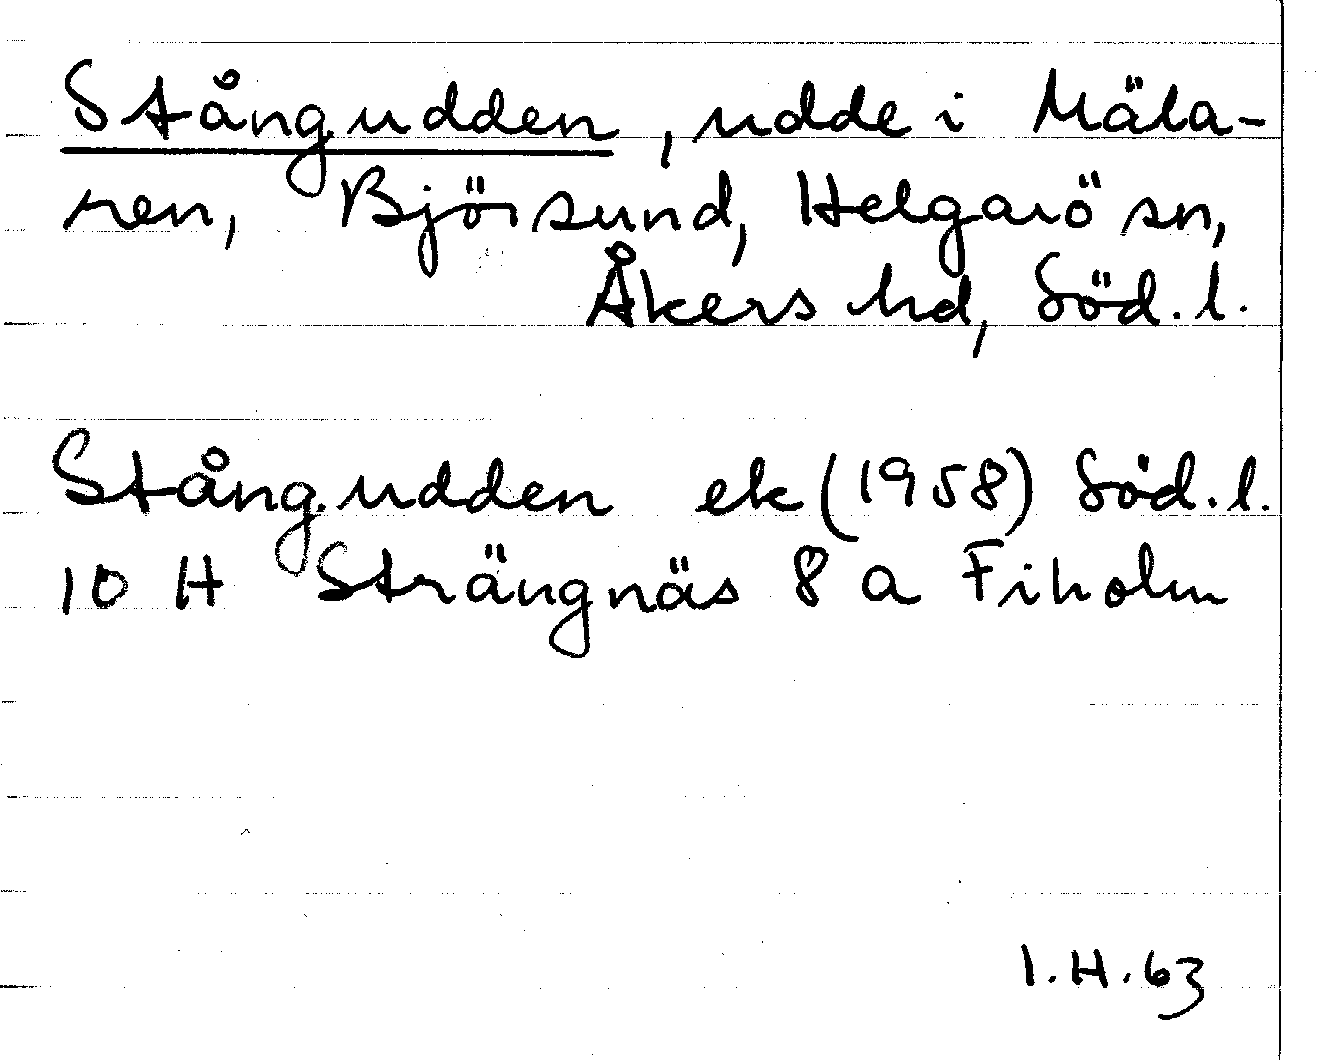 Stångudden, udde i Mäla-
ren, Björsund, Helgarö sn,
Åkers hd, Söd. l.
Stångudden ek (1958) Söd. l.
10 H Strängnäs 8 a Fiholm
I. H. 63